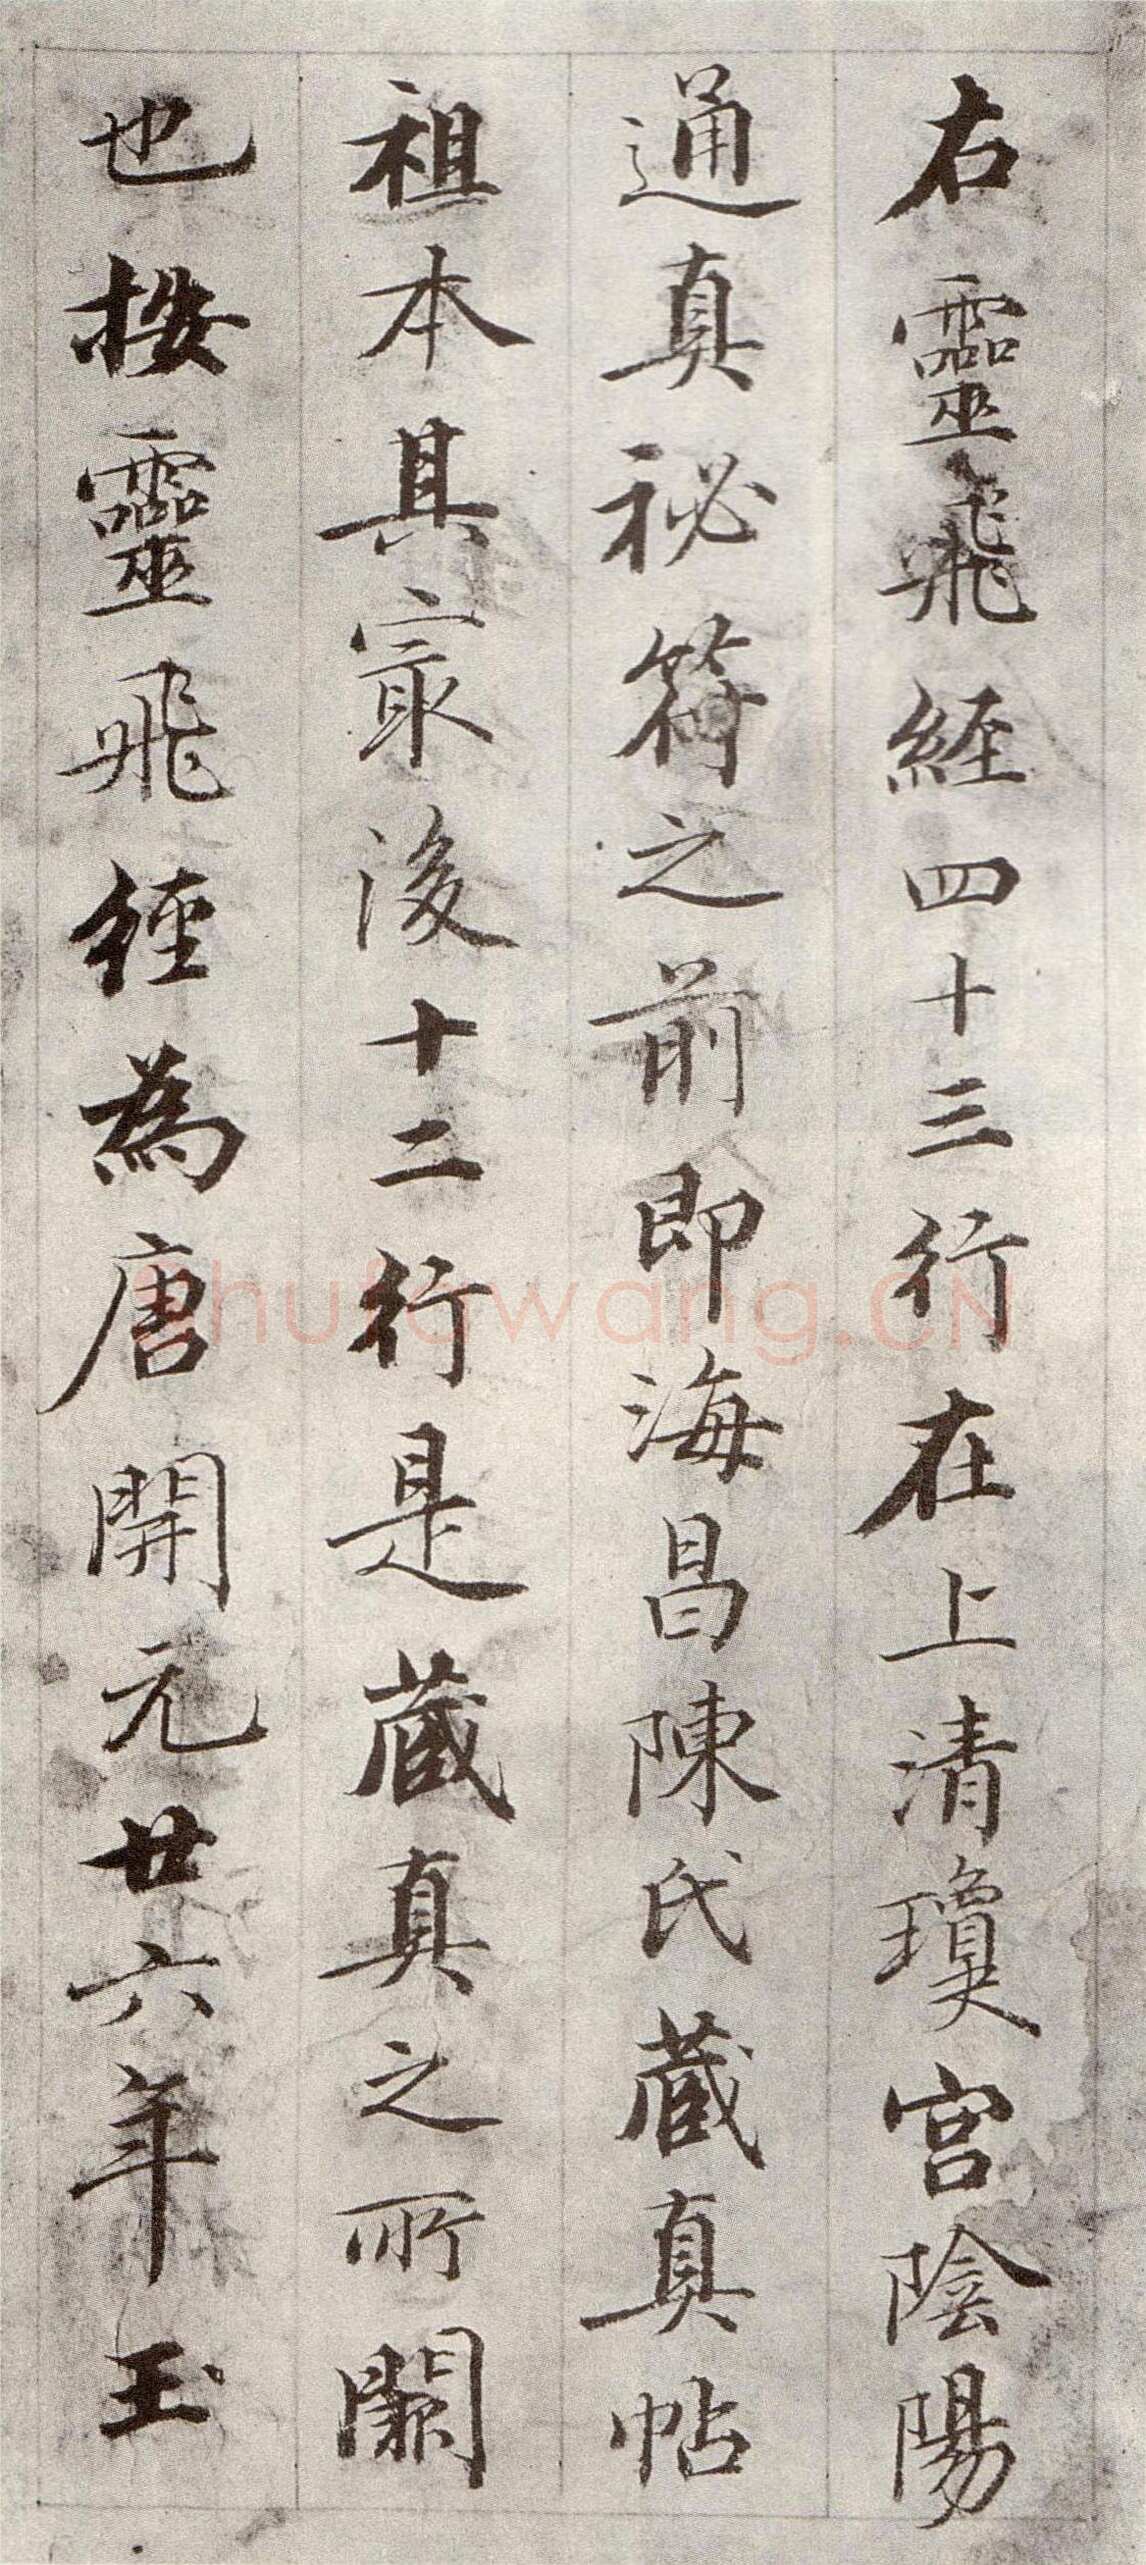 右靈飛經四十三行在上清瓊宮陰陽
通真祕符之前即海昌陳氏蔵真帖
祖本其㝡後十二行是蔵真之所闕
也按靈飛經為唐開元廿六年玉
shufawang.CN